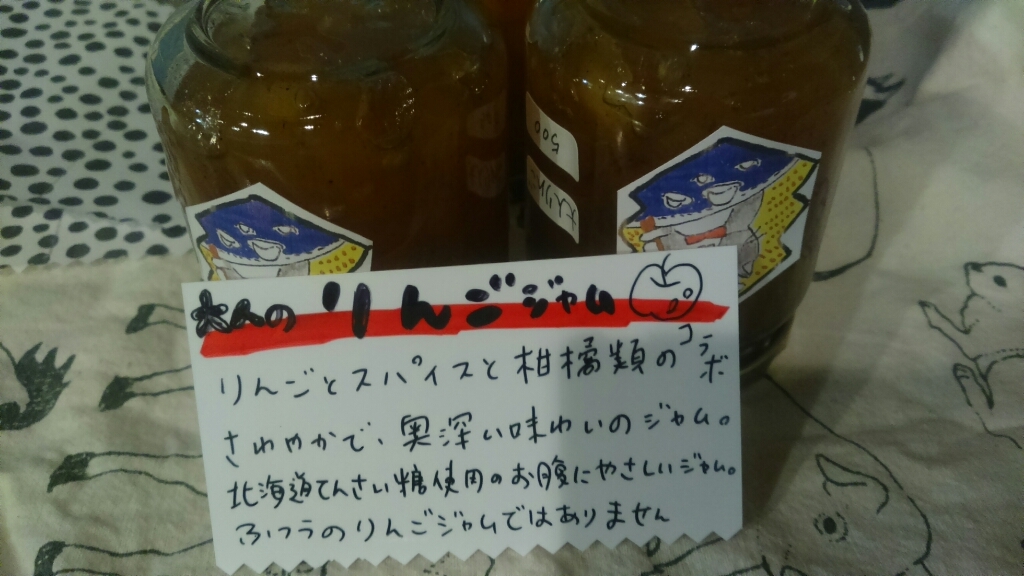 500
大人のりんごジャム
りんごとスパイスと柑橘類のコラボ
さわやかで、奥深い味わいのジャム。
北海道てんさい糖使用のお腹にやさしいジャム。
ふつうのりんごジャムではありません